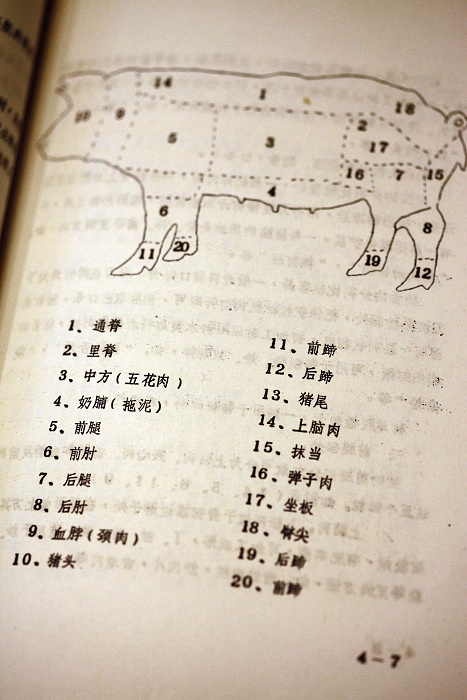 14 1 18
10 9 2
5 3 17
16 7 15
4
6 8
11 20 19 12
1、通脊
2、里脊
3、中方(五花肉)
4、奶脯(拖泥)
5、前腿
6、前肘
7、后腿
8、后肘
9、血脖(颈肉)
10、猪头
11、前蹄
12、后蹄
13、猪尾
14、上脑肉
15、抹当
16、弹子肉
17、坐板
18、臀尖
19、后蹄
20、前蹄
4-7